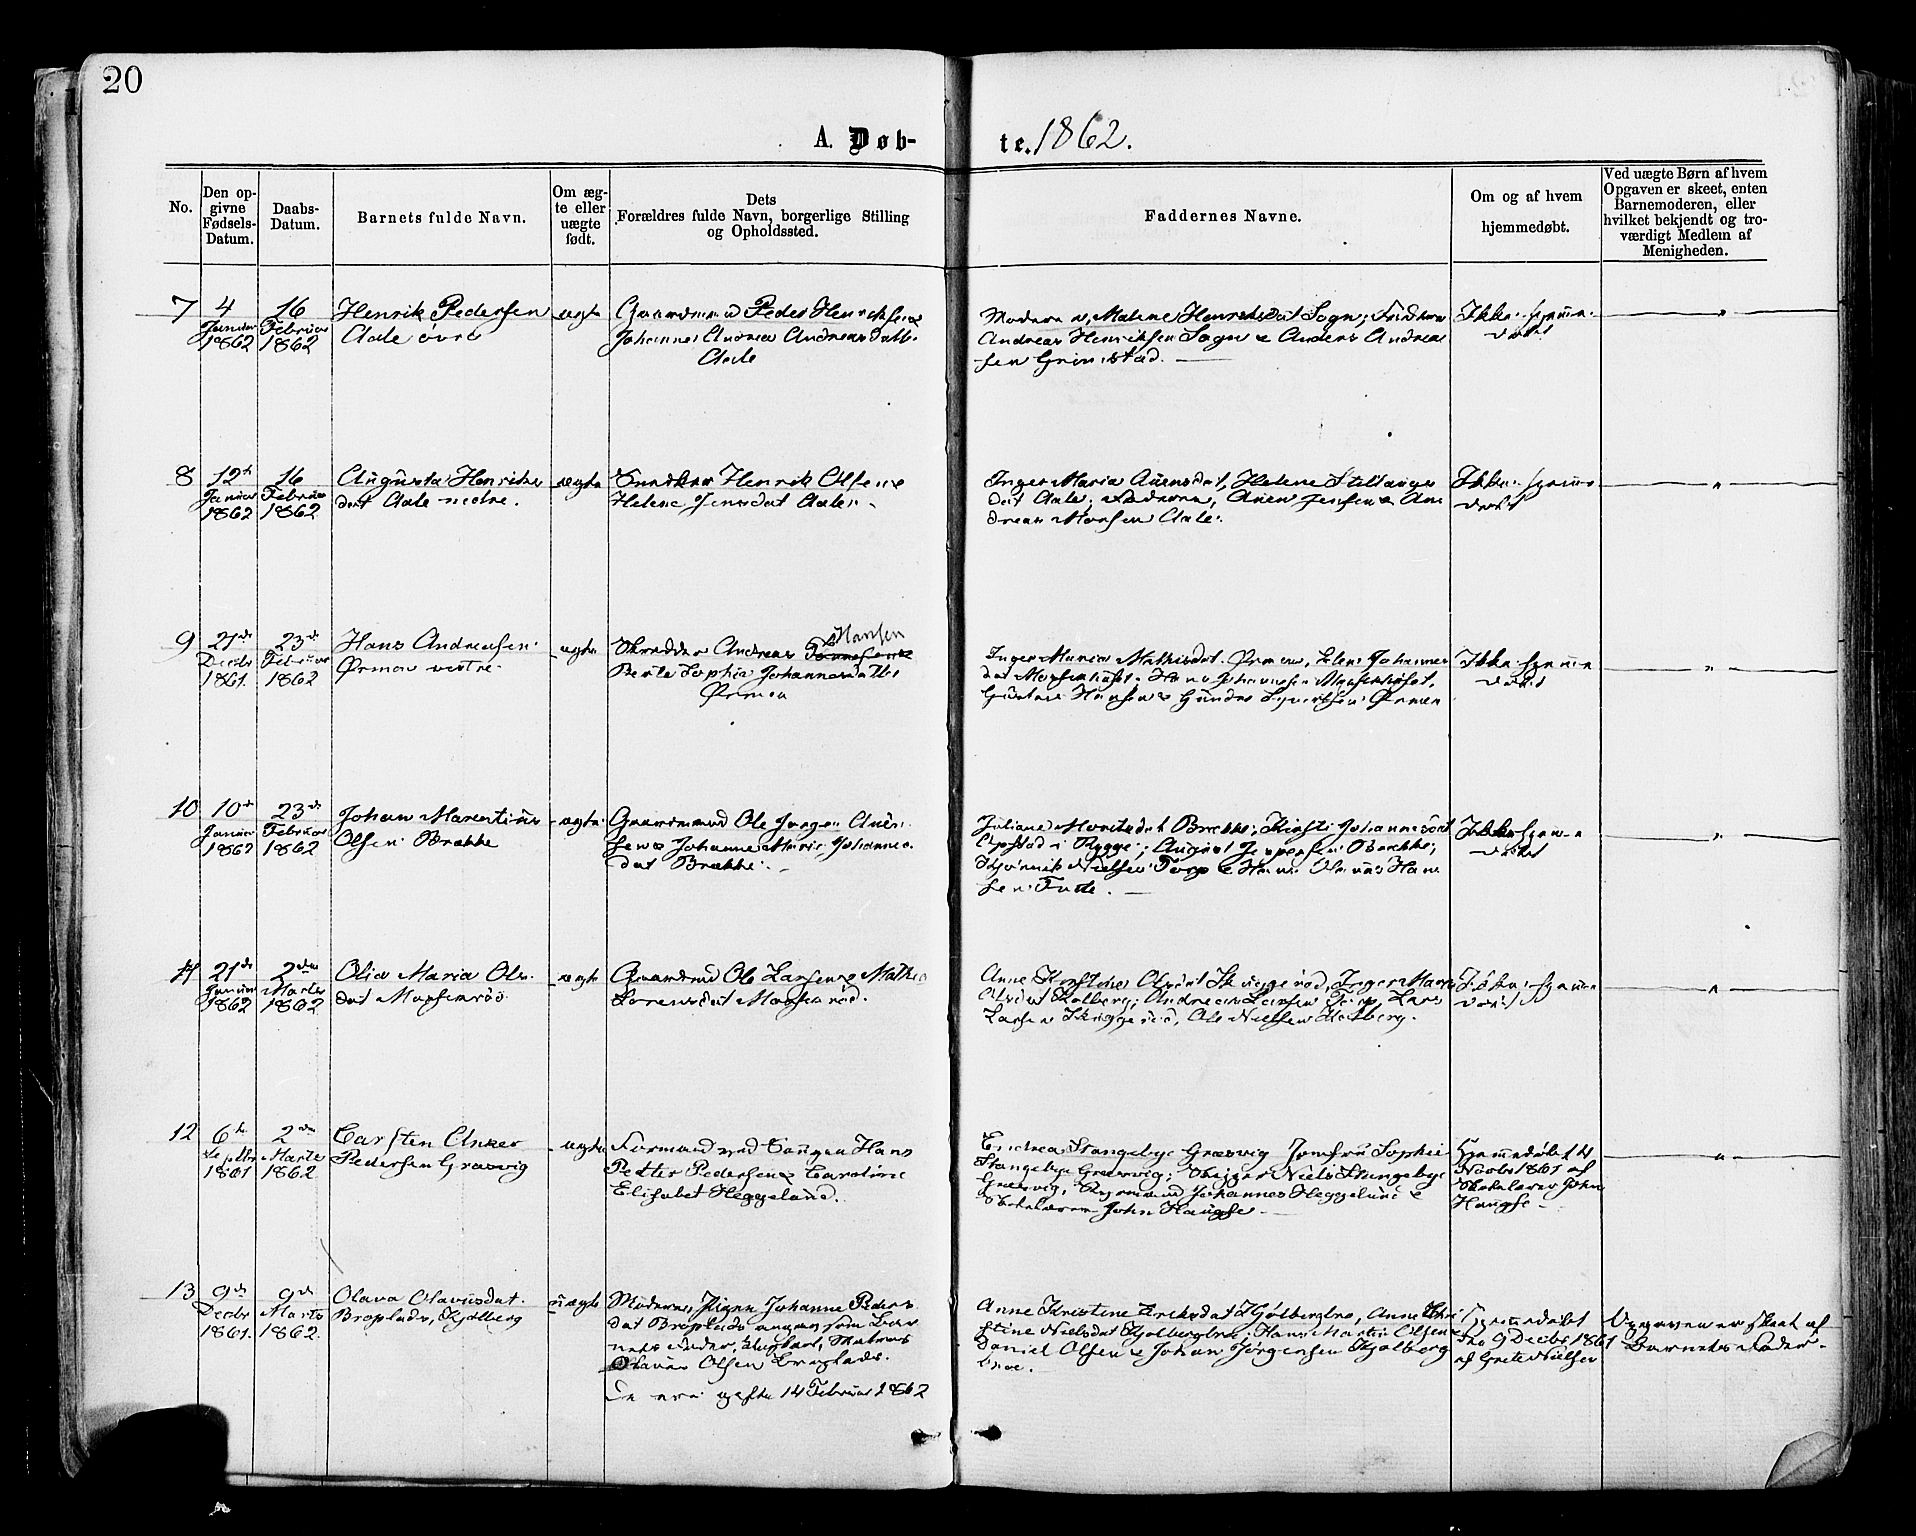 20
A. Døb-
te. 1862.
No.
Den op-
givne
Fødsels-
Datum.
Daabs-
Datum.
Barnets fulde Navn.
Om æg-
te eller
uægte
født.
Dets
Forældres fulde Navn, borgerlige Stilling
og Opholdssted.
Faddernes Navne.
Om og af hvem
hjemmedøbt.
Ved uægte Børn af hvem
Opgaven er skeet, enten
Barnemoderen, eller
hvilket bekjendt og tro-
værdigt Medlem af
Menigheden.
7
4
Januar
1862
16
Februar
1862
Henrik Pedersen
Aale øvre
ægte
Gaardmand Peder Henriksen &
Johanne Andrea Andreasdatt.
Aale
Moderen, Malene Henriksdat Sogn;
Andreas Henriksen Sogn & Anders Andrea
sen Grimstad.
Ikke hjemme
døbt
"
8
12te
Januar
1862
16
Februar
1862
Augusta Henriks
dat Aale nedre.
ægte
Snedker Henrik Olsen &
Helene Jensdat Aale.
Inger Maria dat, Helene
dat Aale; Faderen, Jensen & An
dreas Aale.
Ikke hjemme
døbt
"
9
21de
Decbr
1861.
23de
Februar
1862
Hans Andreasen
Ørmen vestre
ægte
Skrædder Andreas Hansen
Berte Sophie Johannesdatter
Ørmen
Inger Maria Mathisdat Ørmen, Johannes
dat Hans Johannesen
Gustav Hansen & Gunder Ørmen
Ikke hjemme
døbt
"
10
10de
Januar
1862
23de
Februar
1862
Johan Marentius
Olsen Brække
ægte
Gaardmand Ole Jørgen
sen & Johanne Marie Johannes
dat Brække.
Juliane dat Brække; Kirsti Johannesdat
i Rygge; August Jespersen Brække;
Nielsen Torp & Hans Han
sen
Ikke hjemme
døbt
"
11
21de
Januar
1862
2den
Marts
1862
Olia Maria Ols
dat
ægte
Gaardmd Ole Larsen & Mathea
Sørensdat
Anne Olsdat Skuggerød, Inger Marie
Olsdat Kolberg; Andreas Larsen Lars
Larsen Skuggerød, Ole Nielsen Kolberg.
Ikke hjemme
døbt
"
12
6te
Septbr
1861
2den
Marts
1862
Carsten Anker
Pedersen Græsvig
ægte
Formand ved Saugen Hans
Petter Pedersen & Caroline
Elisabet Heggelund.
Stangebye Græsvig, Jomfru Sophie
Stangebye Græsvig; Skipper Niels Stangebye
Græsvig, Johannes Heggelund &
Skolelærer John Haugse
Hjemmedøbt 14
Novbr 1861 af
Skolelærer John
Haugse
"
13
9de
Decbr
1861.
9de
Marts
1862.
Olava Olavusdat
Broplads, Kjølberg
uægte
Moderen, Pigen Johanne Peders
dat Broplads angav som Bar
nets Fader, Ungkarl, Matros
Olavus Olsen Broplads.
De ere gifte 14 Februar 1862
Anne Kristine Eriksdat Kjølbergbro, Anne Chri
stine Nielsdat Kjølbergbro; Hans Martin Olsen
Daniel Olsen & Johan Jørgensen Kjølberg
broe.
Hjemmedøbt
den 9 Decbr 1861
af Grete Nielsen
Opgaven er skeet af
Barnets Fader.